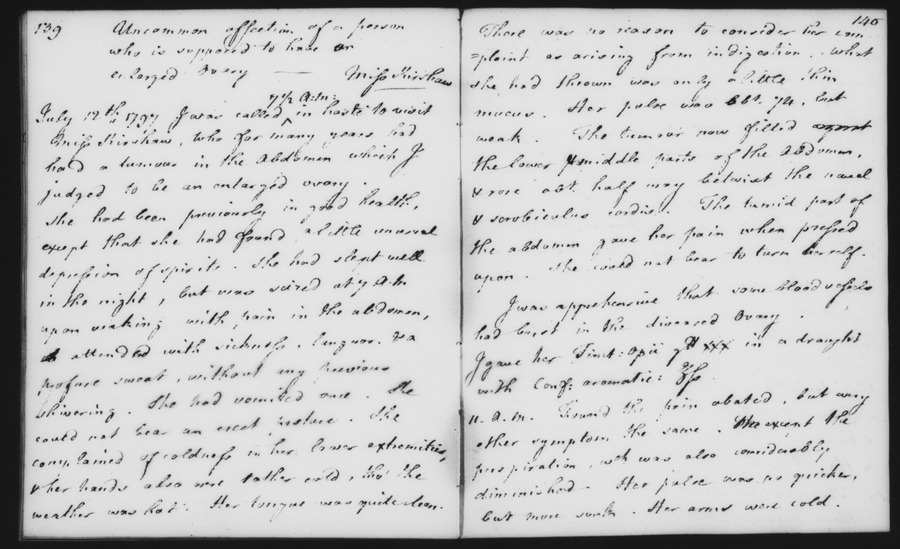 139
Uncommon affection of a person
who is supposed to have an
enlarged Ovary — Miss Kershaw
7½ A:m:
July 12th 1797 I was called ^ in haste to visit
Miss Kershaw, who for many years had
had a tumour in the Abdomen which I
judged to be an enlarged ovary.
She had been previously in good health,
except that she had found a little unusual
depression of spirits. She had slept well
in the night, but was seized at 7 A:m
upon waking with pain in the abdomen,
attended with sickness, languor & a
profuse sweat, without any previous
shivering. She had vomited once. She
could not bear an erect posture. She
complained of coldness in her lower extremities,
& her hands also were rather cold, tho' the
weather was hot. Her tongue was quite clean.
140
There was no reason to consider her com
=plaint as arising from indigestion. What
she had thrown was only a little thin
mucus. Her pulse was 74, but
weak. The tumour now filled
the lower & middle parts of the Abdomen,
& rose abt half way betwixt the navel
& scrobiculus cordis. The tumid part of
the abdomen gave her pain when pressed
upon. She could not bear to turn herself.
I was apprehensive that some blood vessels
had burst in the diseased Ovary.
I gave her Tinct: Opii gtt xxx in a draught
with Conf: aromatic: ʒſs.
11. A.m. Found the pain abated, but every
other symptom the same, except the
perspiration, wch was also considerably
diminished. Her pulse was no quicker,
but more weak. Her arms were cold.